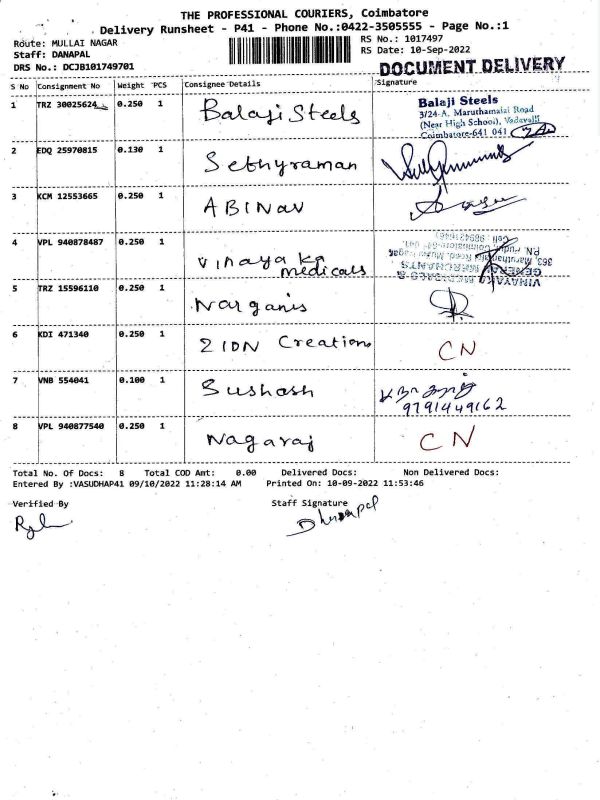 THE PROFESSIONAL COURIERS, Coimbatore
Delivery Runsheet - P41 - Phone No.:0422-3505555 - Page No.:1
Route: MULLAI NAGAR
RS No.: 1017497
Staff: DANAPAL
RS Date: 10-Sep-2022
DRS No.: DCJB101749701
DOCUMENT DELIVERY
S No Consignment No Weight PCS Consignee Details Signature
1 TRZ 30025624 0.250 1 Balaji Steels
Balaji Steels
3/24-A, Maruthamalai Road
(Near High School), Vadavalli
Coimbatore-641 041
2 EDQ 25970815 0.130 1 Sethyraman
3 KCM 12553665 0.250 1 ABINAV
4 VPL 940878487 0.250 1 Vinayaka
medicals
VINAYAKA MEDICALS &
GENERAL MERCHANTS
363, Maruthamalai Road, Mullai Nagar
5 TRZ 15596110 0.250 1 Narganis
6 KDI 471340 0.250 1 ZION Creations CN
7 VNB 554041 0.100 1 Sushash
9791449162
8 VPL 940877540 0.250 1 Nagaraj CN
Total No. Of Docs: 8 Total COD Amt: 0.00 Delivered Docs: Non Delivered Docs:
Entered By :VASUDHAP41 09/10/2022 11:28:14 AM Printed On: 10-09-2022 11:53:46
Verified By Staff Signature
Dhanapal